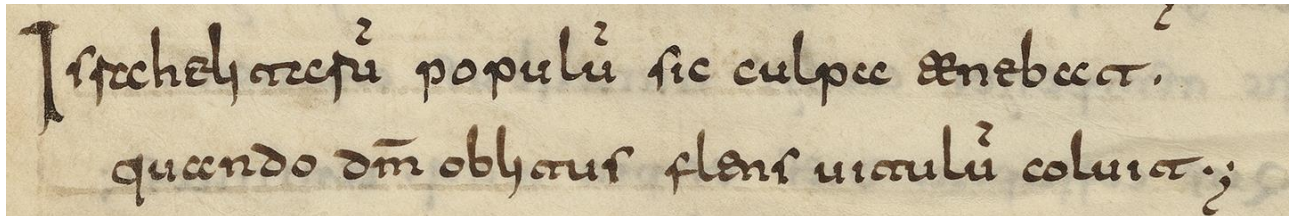 Israhelitarū populū sic culpa tenebat.
quando dm̄ oblitus flens uitulū coluit.;